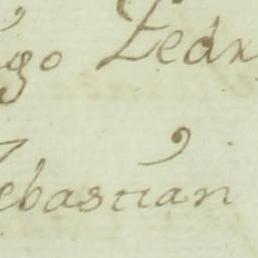 go Pedr
ebastián